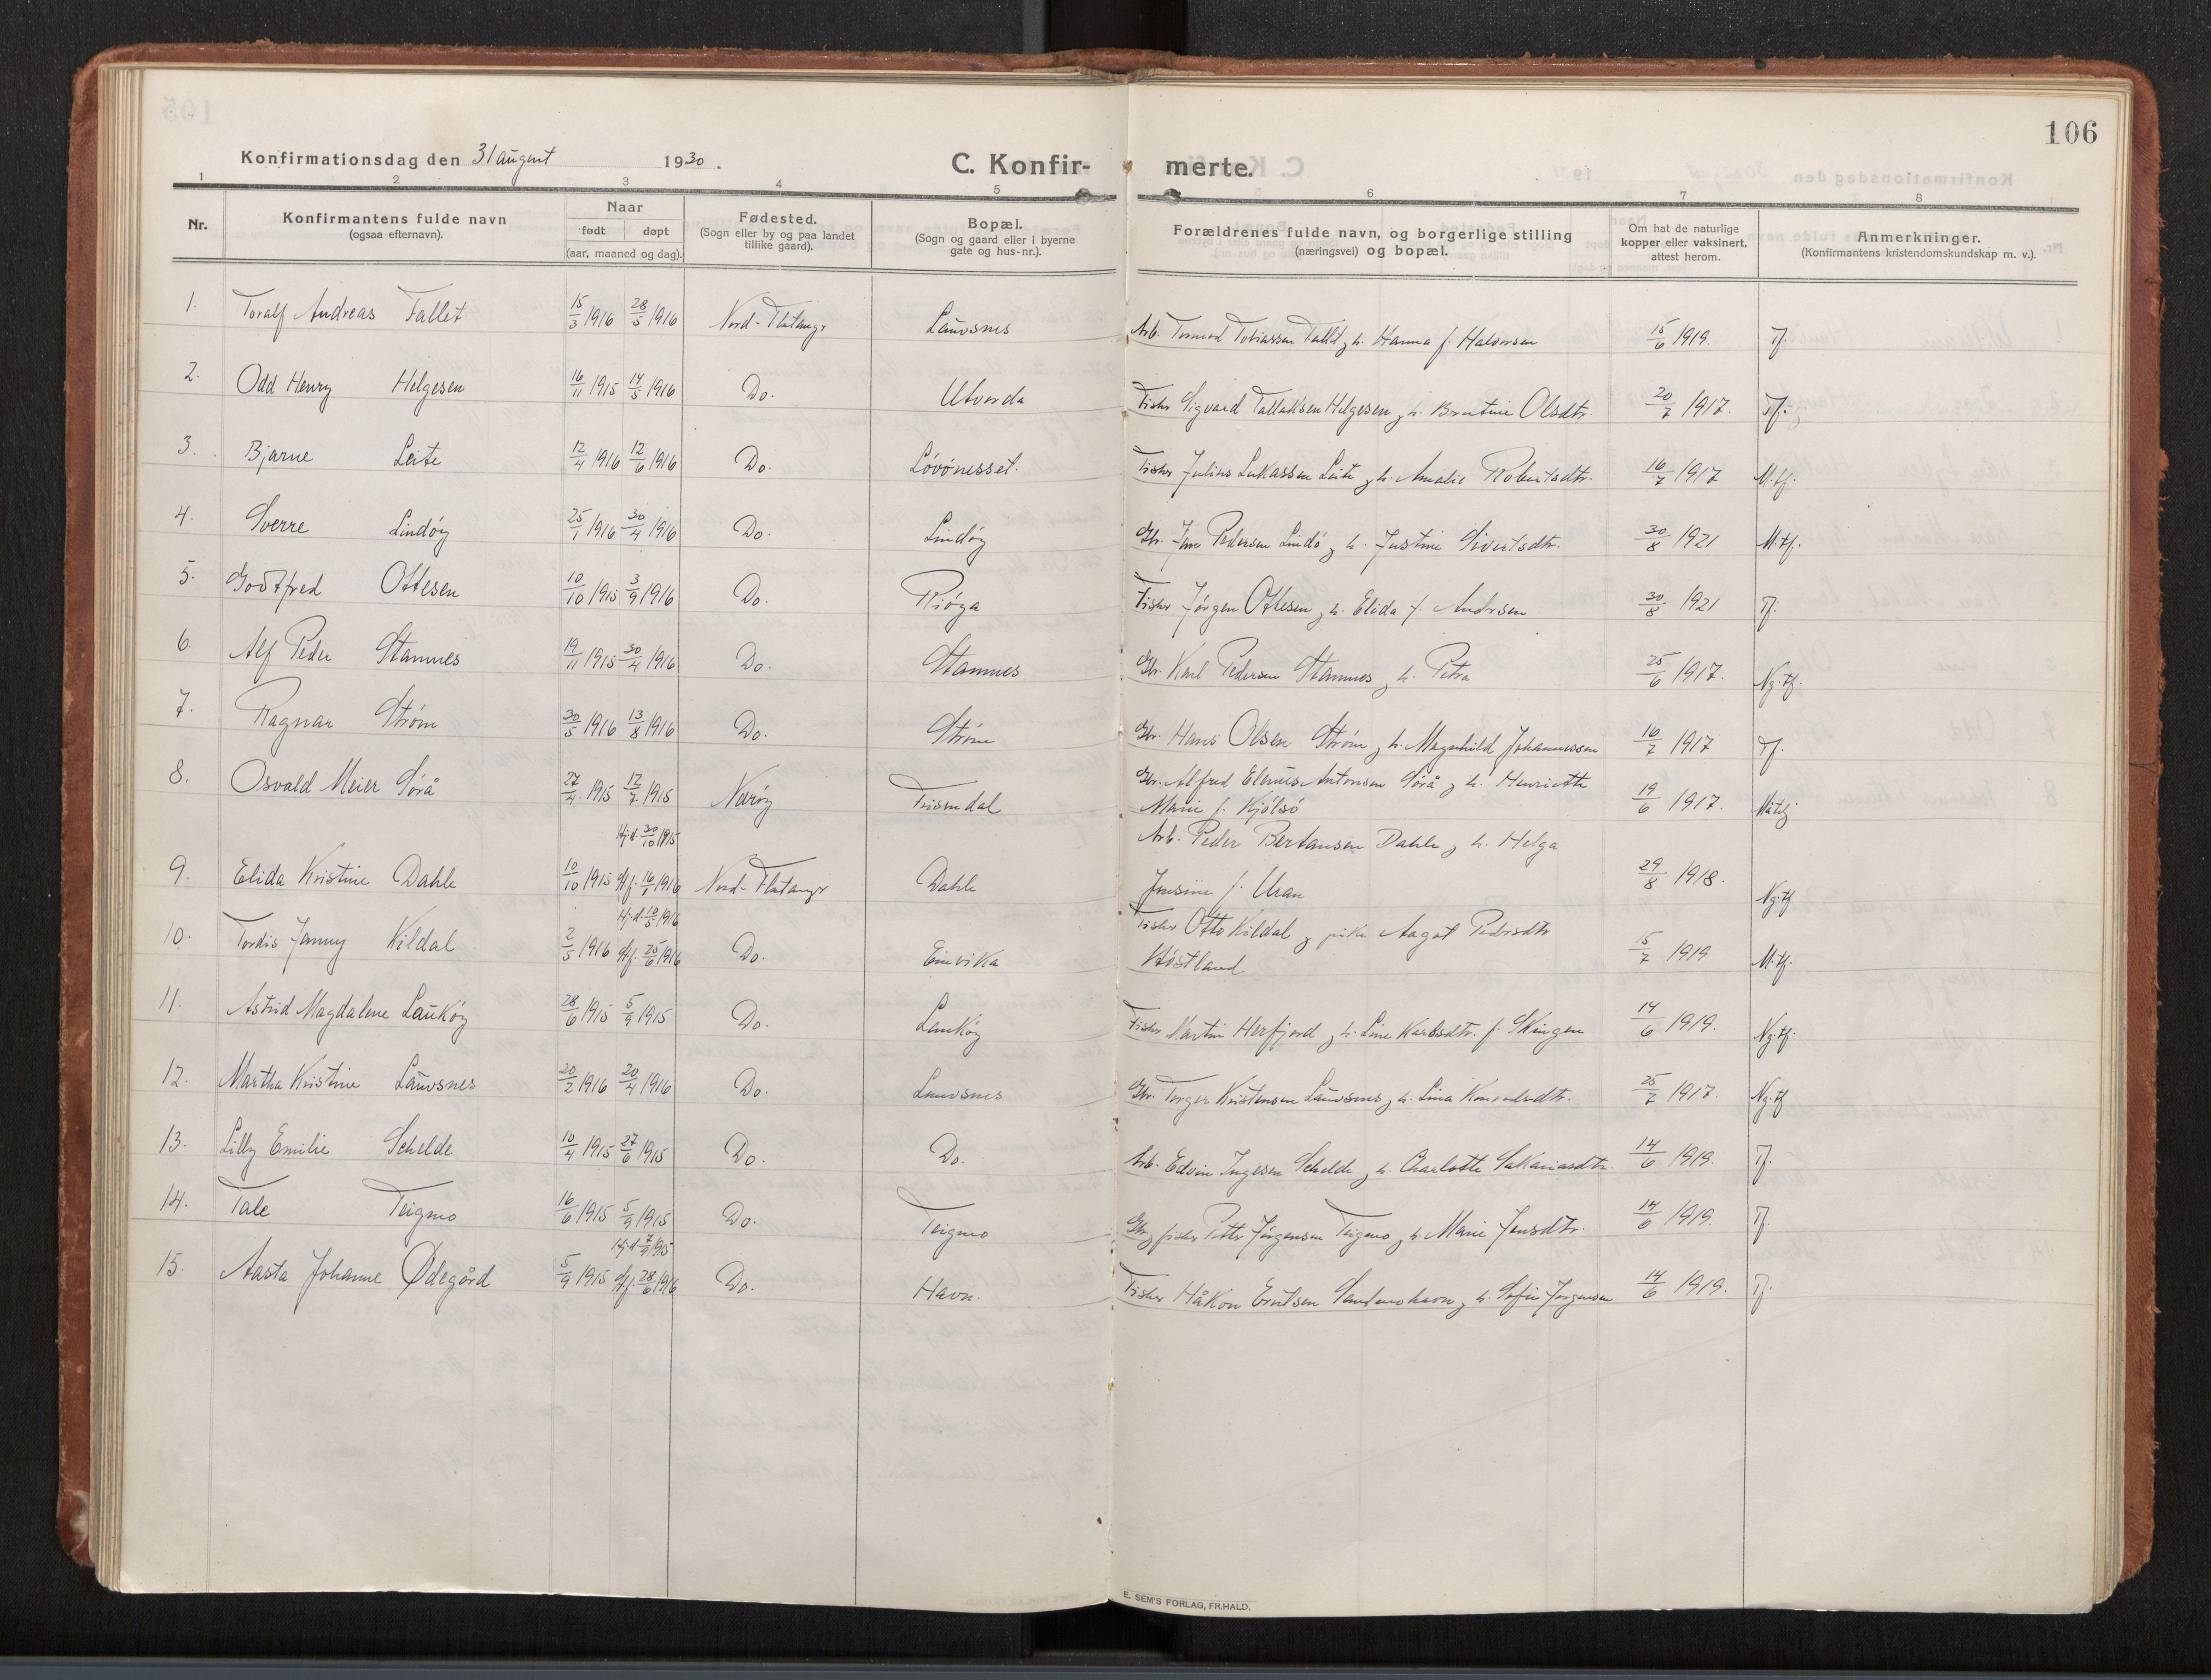 106
Konfirmationsdag den 31 august 1930.
C. Konfir- merte.
1 2 3 4 5 6 7 8
Nr.
Konfirmantens fulde navn
(ogsaa efternavn).
Naar
født døpt
(aar, maaned og dag).
Fødested.
(Sogn eller by og paa landet
tillike gaard).
Bopæl.
(Sogn og gaard eller i byerne
gate og hus-nr.).
Forældrenes fulde navn, og borgerlige stilling
(næringsvei) og bopæl.
Om hat de naturlige
kopper eller vaksinert,
attest herom.
Anmerkninger.
(Konfirmantens kristendomskundskap m. v.).
1. Toralf Andreas Fallet 15/3 1916 28/5 1916 Nord-Flatangr Lauvsnes Arb. Tormod Tobiassen Fallet, h. Hanna f. Halvorsen 15/6 1919. Tf.
2. Odd Henry Helgesen 16/11 1915 14/5 1916 Do. Utvorda Fisker Sigvard Tollaksen Helgesen, h. Bentine Olsdtr. 20/7 1917. Tf.
3. Bjarne Leite 12/4 1916 12/6 1916 Do. Lövönesset. Fisker Julius Lukassen Leite, h. Amalie Robertsdtr. 16/7 1917 M.tf.
4. Sverre Lindöy 25/1 1916 30/4 1916 Do. Lindöy Gbr. Jens Pedersen Lindö, h. Justine Sivertsdtr. 30/8 1921 M.tf.
5. Godtfred Ottesen 10/10 1915 3/9 1916 Do. Riöya Fisker Jörgen Ottesen, h. Elida f. Andrsen 30/8 1921 Tf.
6. Alf Peder Stamnes 19/11 1915 30/4 1916 Do. Stamnes Gbr. Karl Pedersen Stamnes, h. Petra 25/6 1917. Ng.tf.
7. Ragnar Ström 30/5 1916 13/8 1916 Do. Ström Gbr. Hans Olsen Ström, h. Magnhild Johannessen 16/7 1917 Tf.
8. Osvald Meier Sörå 27/4 1915 12/7 1915 Næröy Frisendal Gbr. Alfred Elenius Antonsen Sörå, h. Henriette
Marie f. Kjölsö 19/6 1917.
Hj.d. 30/10 1915 Arb. Peder Bertausen Dahle, h. Helga
9. Elida Kristine Dahle 10/10 1915 Stf. 16/1 1916 Nord-Flatangr Dahle Jensine f. Uran 29/8 1918. Ng.tf
Hj.d. 10/5 1916 Fisker Otto Kildal, pike Aagot Pedrsdtr
10. Tordis Jenny Kildal 2/5 1916 Stf. 25/6 1916 Do. Einvika Köstland 15/7 1919 M.tf.
11. Astrid Magdalene Lauköy 28/6 1915 5/9 1915 Do. Lauköy Fisker Martin Herfjord, h. Line Karlsdtr. f. Skingen 14/6 1919. Ng.tf.
12. Martha Kristine Lauvsnes 20/2 1916 20/4 1916 Do. Lauvsnes Gbr. Torger Kristensen Lauvsnes, h. Lina Konradsdtr. 25/7 1917. Ng.tf
13. Lilly Emilie Schelde 10/4 1915 27/6 1915 Do. Do. Arb. Edvin Ingesen Schelde, h. Charlotte Sakariasdtr. 14/6 1919. Tf.
14. Tale Teigmo 16/6 1915 5/9 1915 Do. Teigmo Gbr, fisker Petter Jörgensen Teigmo, h. Marie Jensdtr. 14/6 1919. Tf.
Hj.d. 7/9 1915
15. Aasta Johanne Ødegård 5/9 1915 Stf. 28/6 1916 Do. Havn. Fisker Håkon Erntsen Sandmohavn, h. Sofie Jörgensen 14/6 1919. Tf.
E. SEM'S FORLAG, FR.HALD.